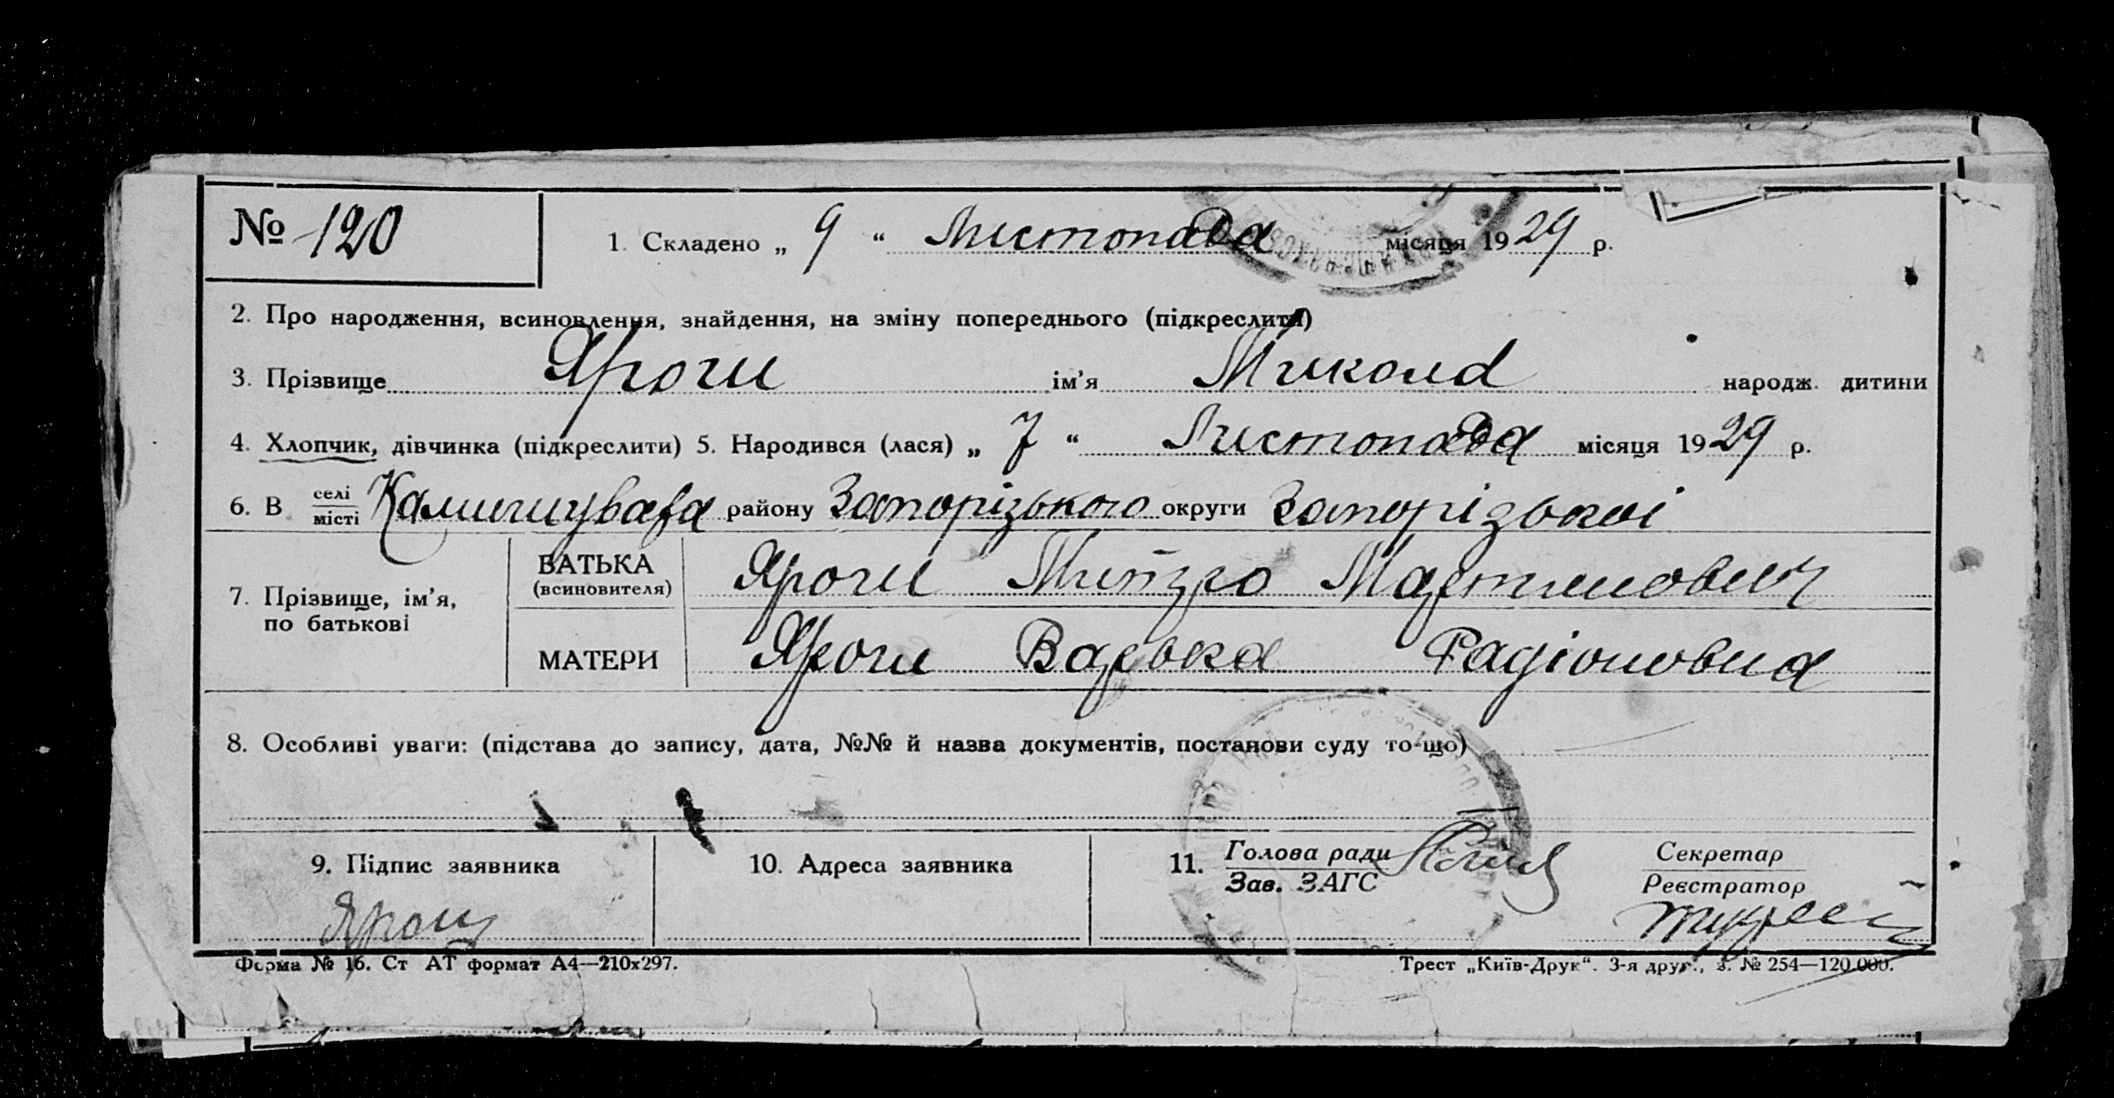 № 120
1. Складено „ 9 “ Листопада місяця 1929 р.
2. Про народження, всиновлення, знайдення, на зміну попереднього (підкреслити)
3. Прізвище Ярош ім’я Микола народж. дитини
4. Хлопчик, дівчинка (підкреслити) 5. Народився (лася) „ 7 “ Листопада місяця 1929 р.
6. В селі місті Камишуваха району Запорізького округи Запорізької
7. Прізвище, ім’я, по батькові
БАТЬКА (всиновителя) Ярош Мартинович
МАТЕРИ Ярош Варька Радіоновна
8. Особливі уваги: (підстава до запису, дата, №№ й назва документів, постанови суду то-що)
9. Підпис заявника
Ярош
10. Адреса заявника
11. Голова ради
Зав. ЗАГС
Секретар
Реєстратор
Форма № 16. Ст АТ формат А4—210х297.
Трест „Київ-Друк“. 3-я друк., з. № 254—120.000.